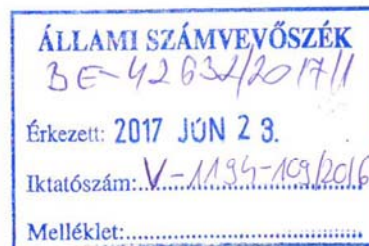 ÁLLAMI SZÁMVEVŐSZÉK
BE-42632/2017/1
Érkezett: 2017 JÚN 23.
Iktatószám: V-1194-109/2016
Melléklet: